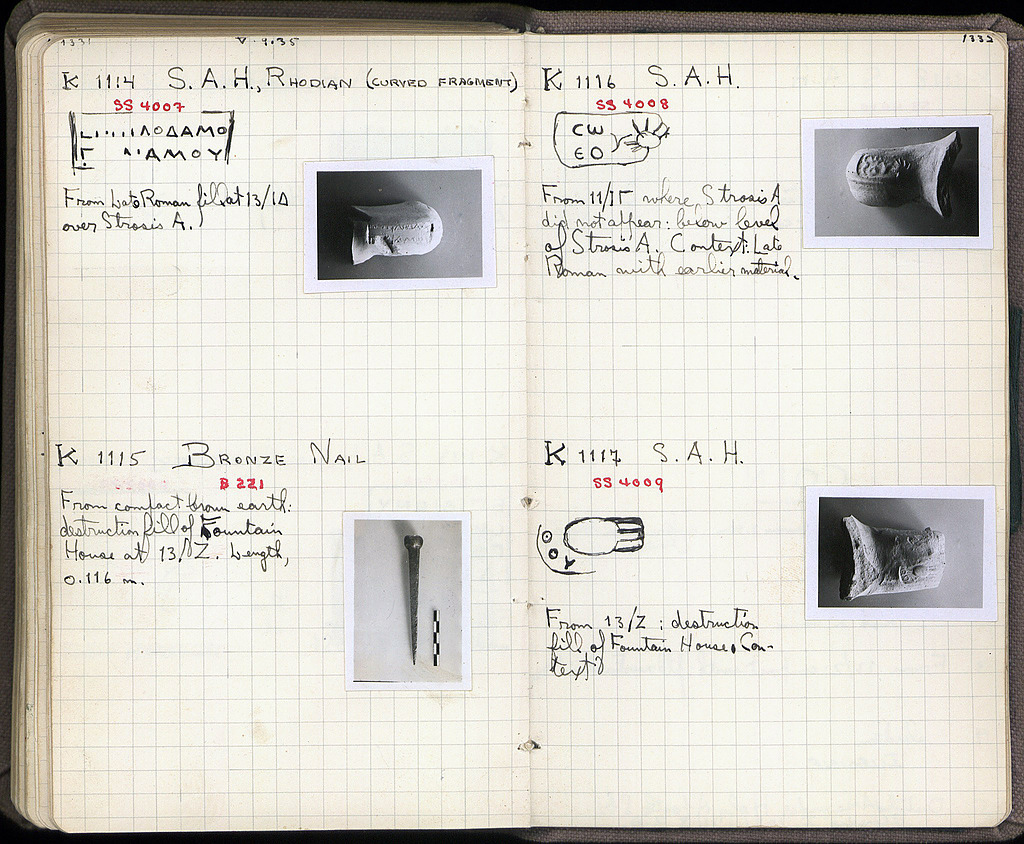 1331
V · 9.35
K 1114 S. A. H., RHODIAN (CURVED FRAGMENT)
SS 4007
ΛΟΔΑΜΟ
ΑΜΟΥ
From Late Roman fill at 13/ΙΔ
over Strosis A.
K 1115 BRONZE NAIL
B 221
From compact brown earth:
destruction fill of Fountain
House at 13/Z. Length,
0.116 m.
1332
K 1116 S. A. H.
SS 4008
CW
ЄO
From 11/ΙΓ where Strosis A
did not appear: below level
of Strosis A. Context: Late
Roman with earlier material.
K 1117 S. A. H.
SS 4009
From 13/Z : destruction
fill of Fountain House. Con-
text?